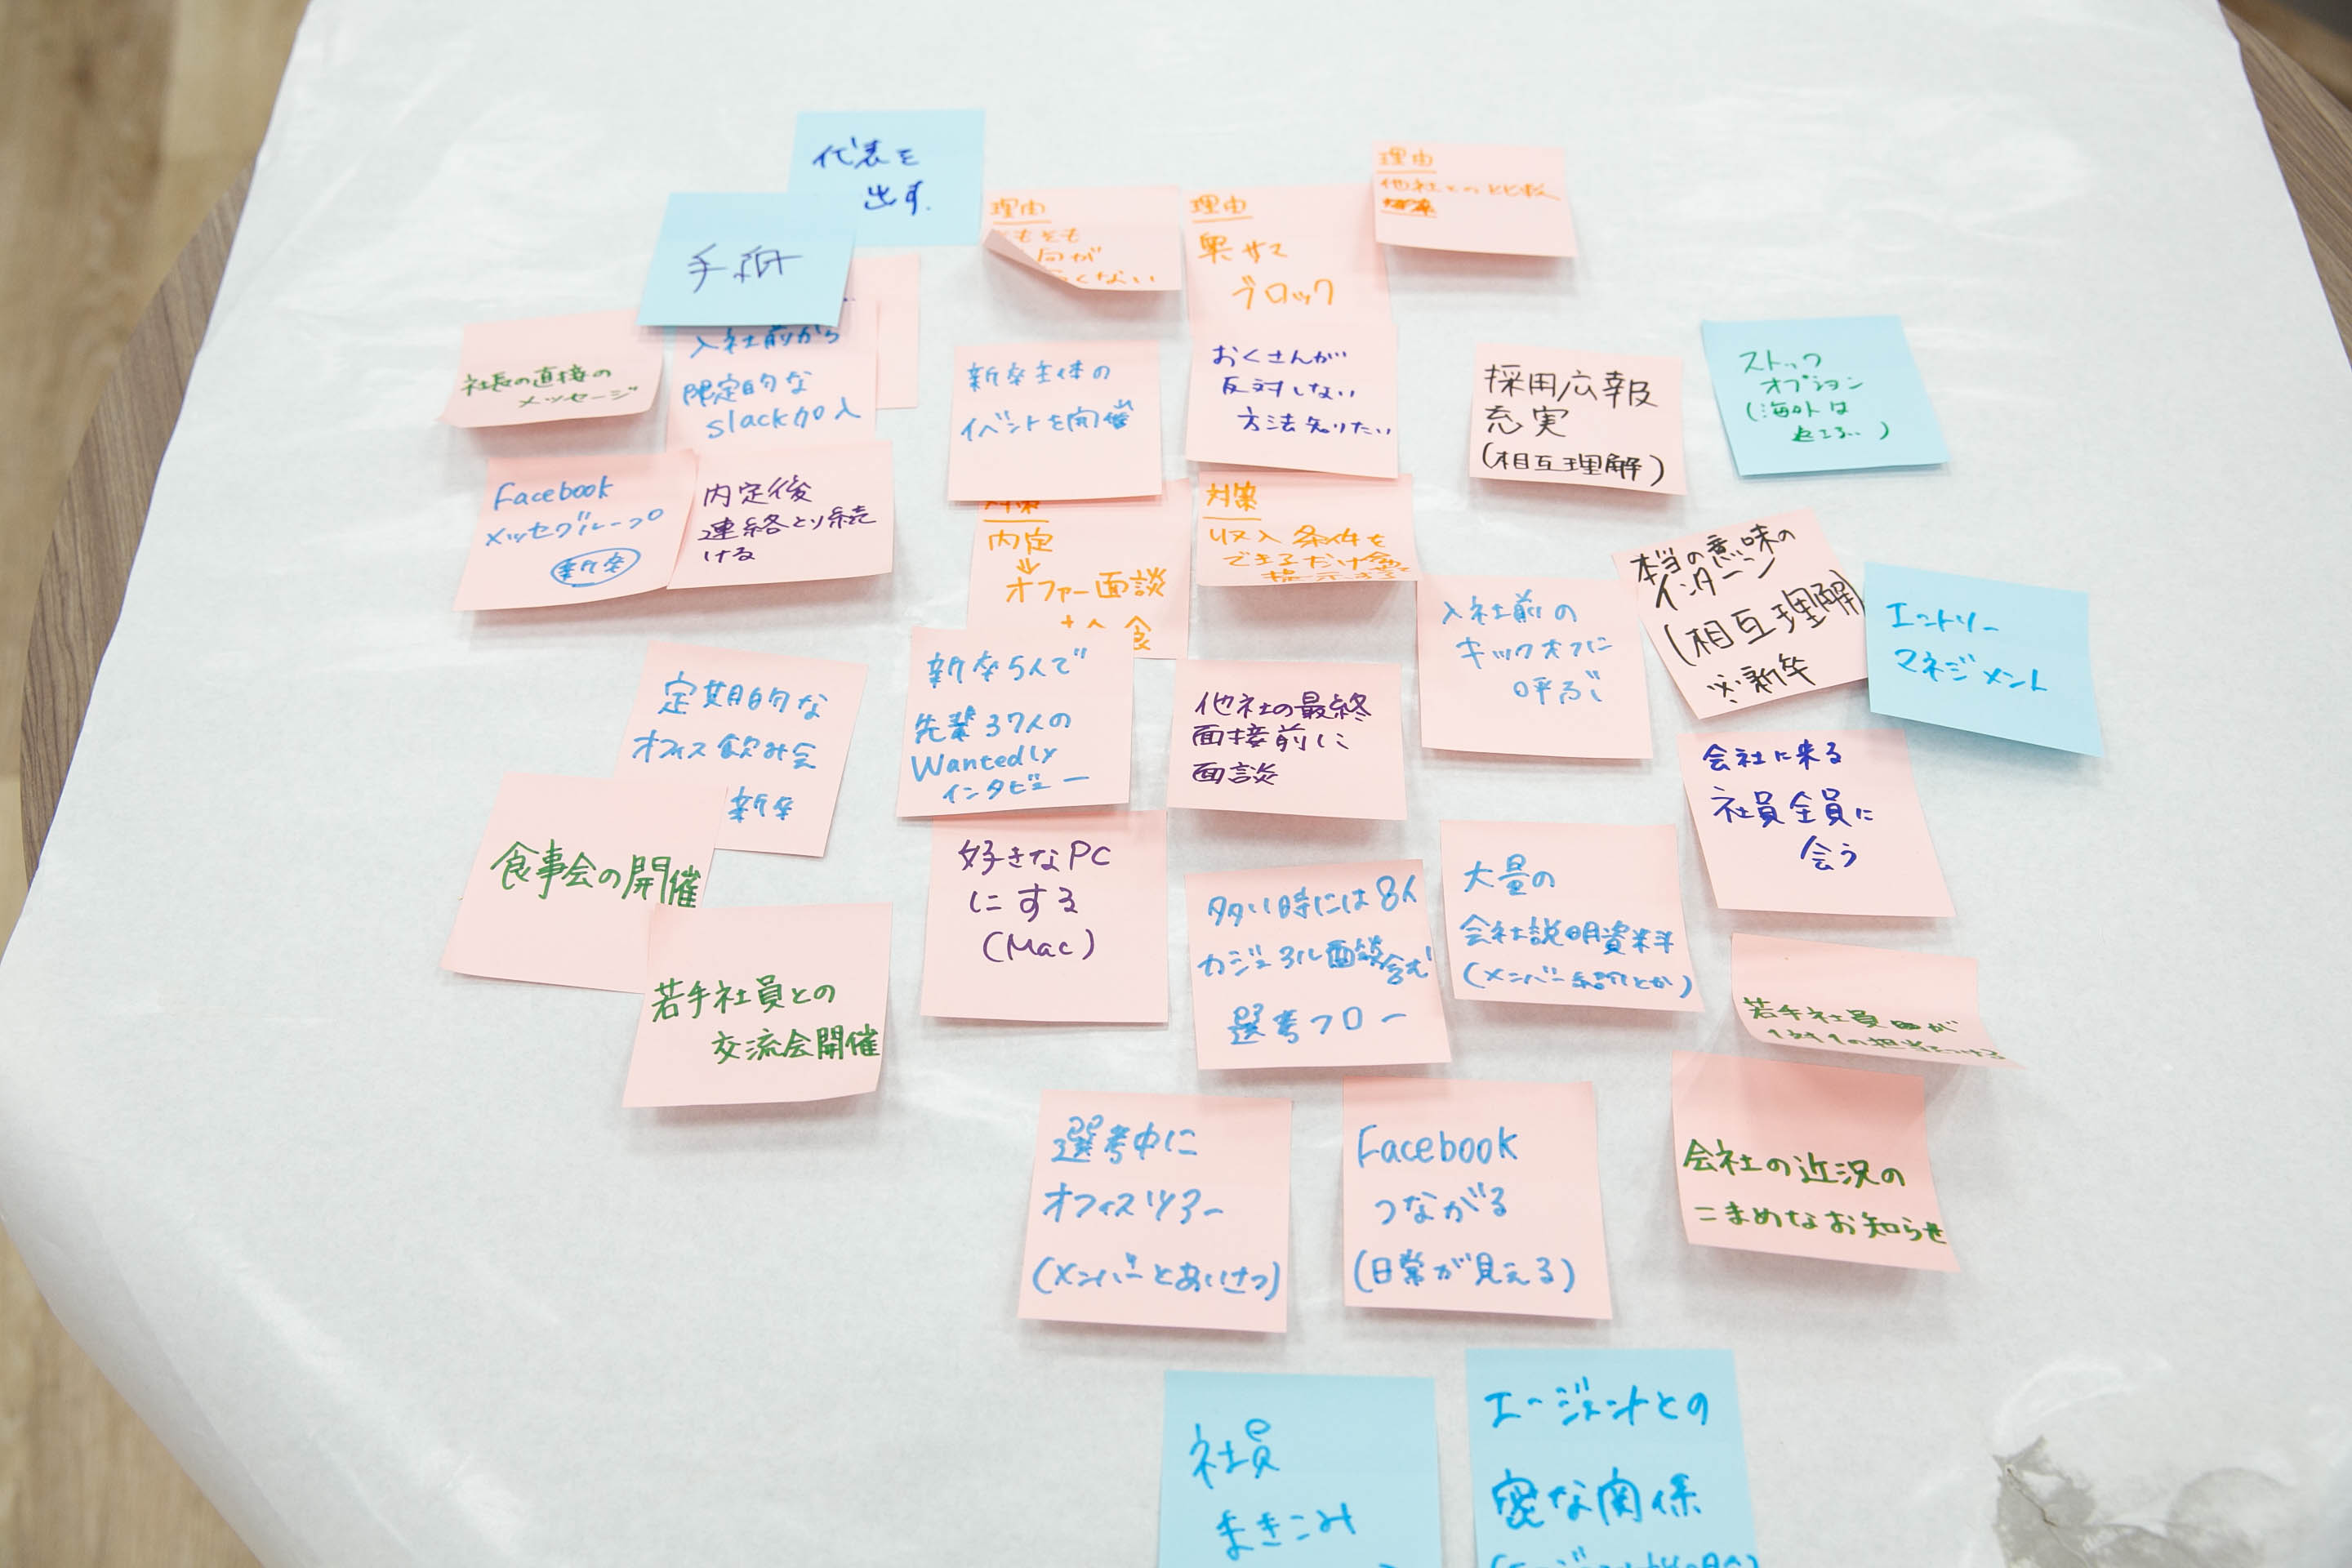 代表を
出す.
手紙
理由
理由
奥サマ
ブロック
理由
他社との比較
社長の直接の
メッセージ
入社前から
限定的な
slack加入
新卒主体の
イベントを開催
おくさんが
反対しない
方法知りたい
採用広報
充実
(相互理解)
ストック
オプション
(海外は
Facebook
メッセグループ
新卒
内定後
連絡とり続
ける
対策
内定
↓
オファー面談
食
対策
収入条件を
できるだけ
入社前の
キックオフに
呼ぶ
本当の意味の
インターン
(相互理解)
※新卒
エントリー
マネジメント
定期的な
オフィス飲み会
新卒
新卒5人で
先輩37人の
Wantedly
インタビュー
他社の最終
面接前に
面談
会社に来る
社員全員に
会う
食事会の開催
好きなPC
にする
(Mac)
多い時には8人
カジュアル面談含む
選考フロー
大量の
会社説明資料
(メンバー紹介とか)
若手社員との
交流会開催
若手社員が
1対1の担当をつける
選考中に
オフィスツアー
(メンバーとあいさつ)
Facebook
つながる
(日常が見える)
会社の近況の
こまめなお知らせ
社員
まきこみ
エージェントとの
密な関係